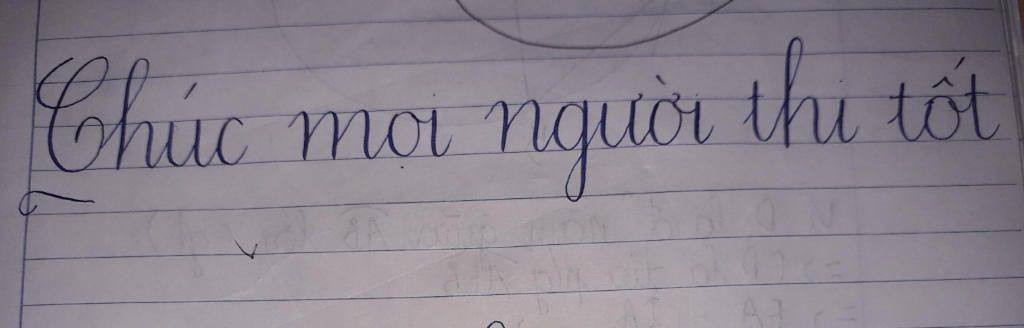 Chúc mọi người thi tốt